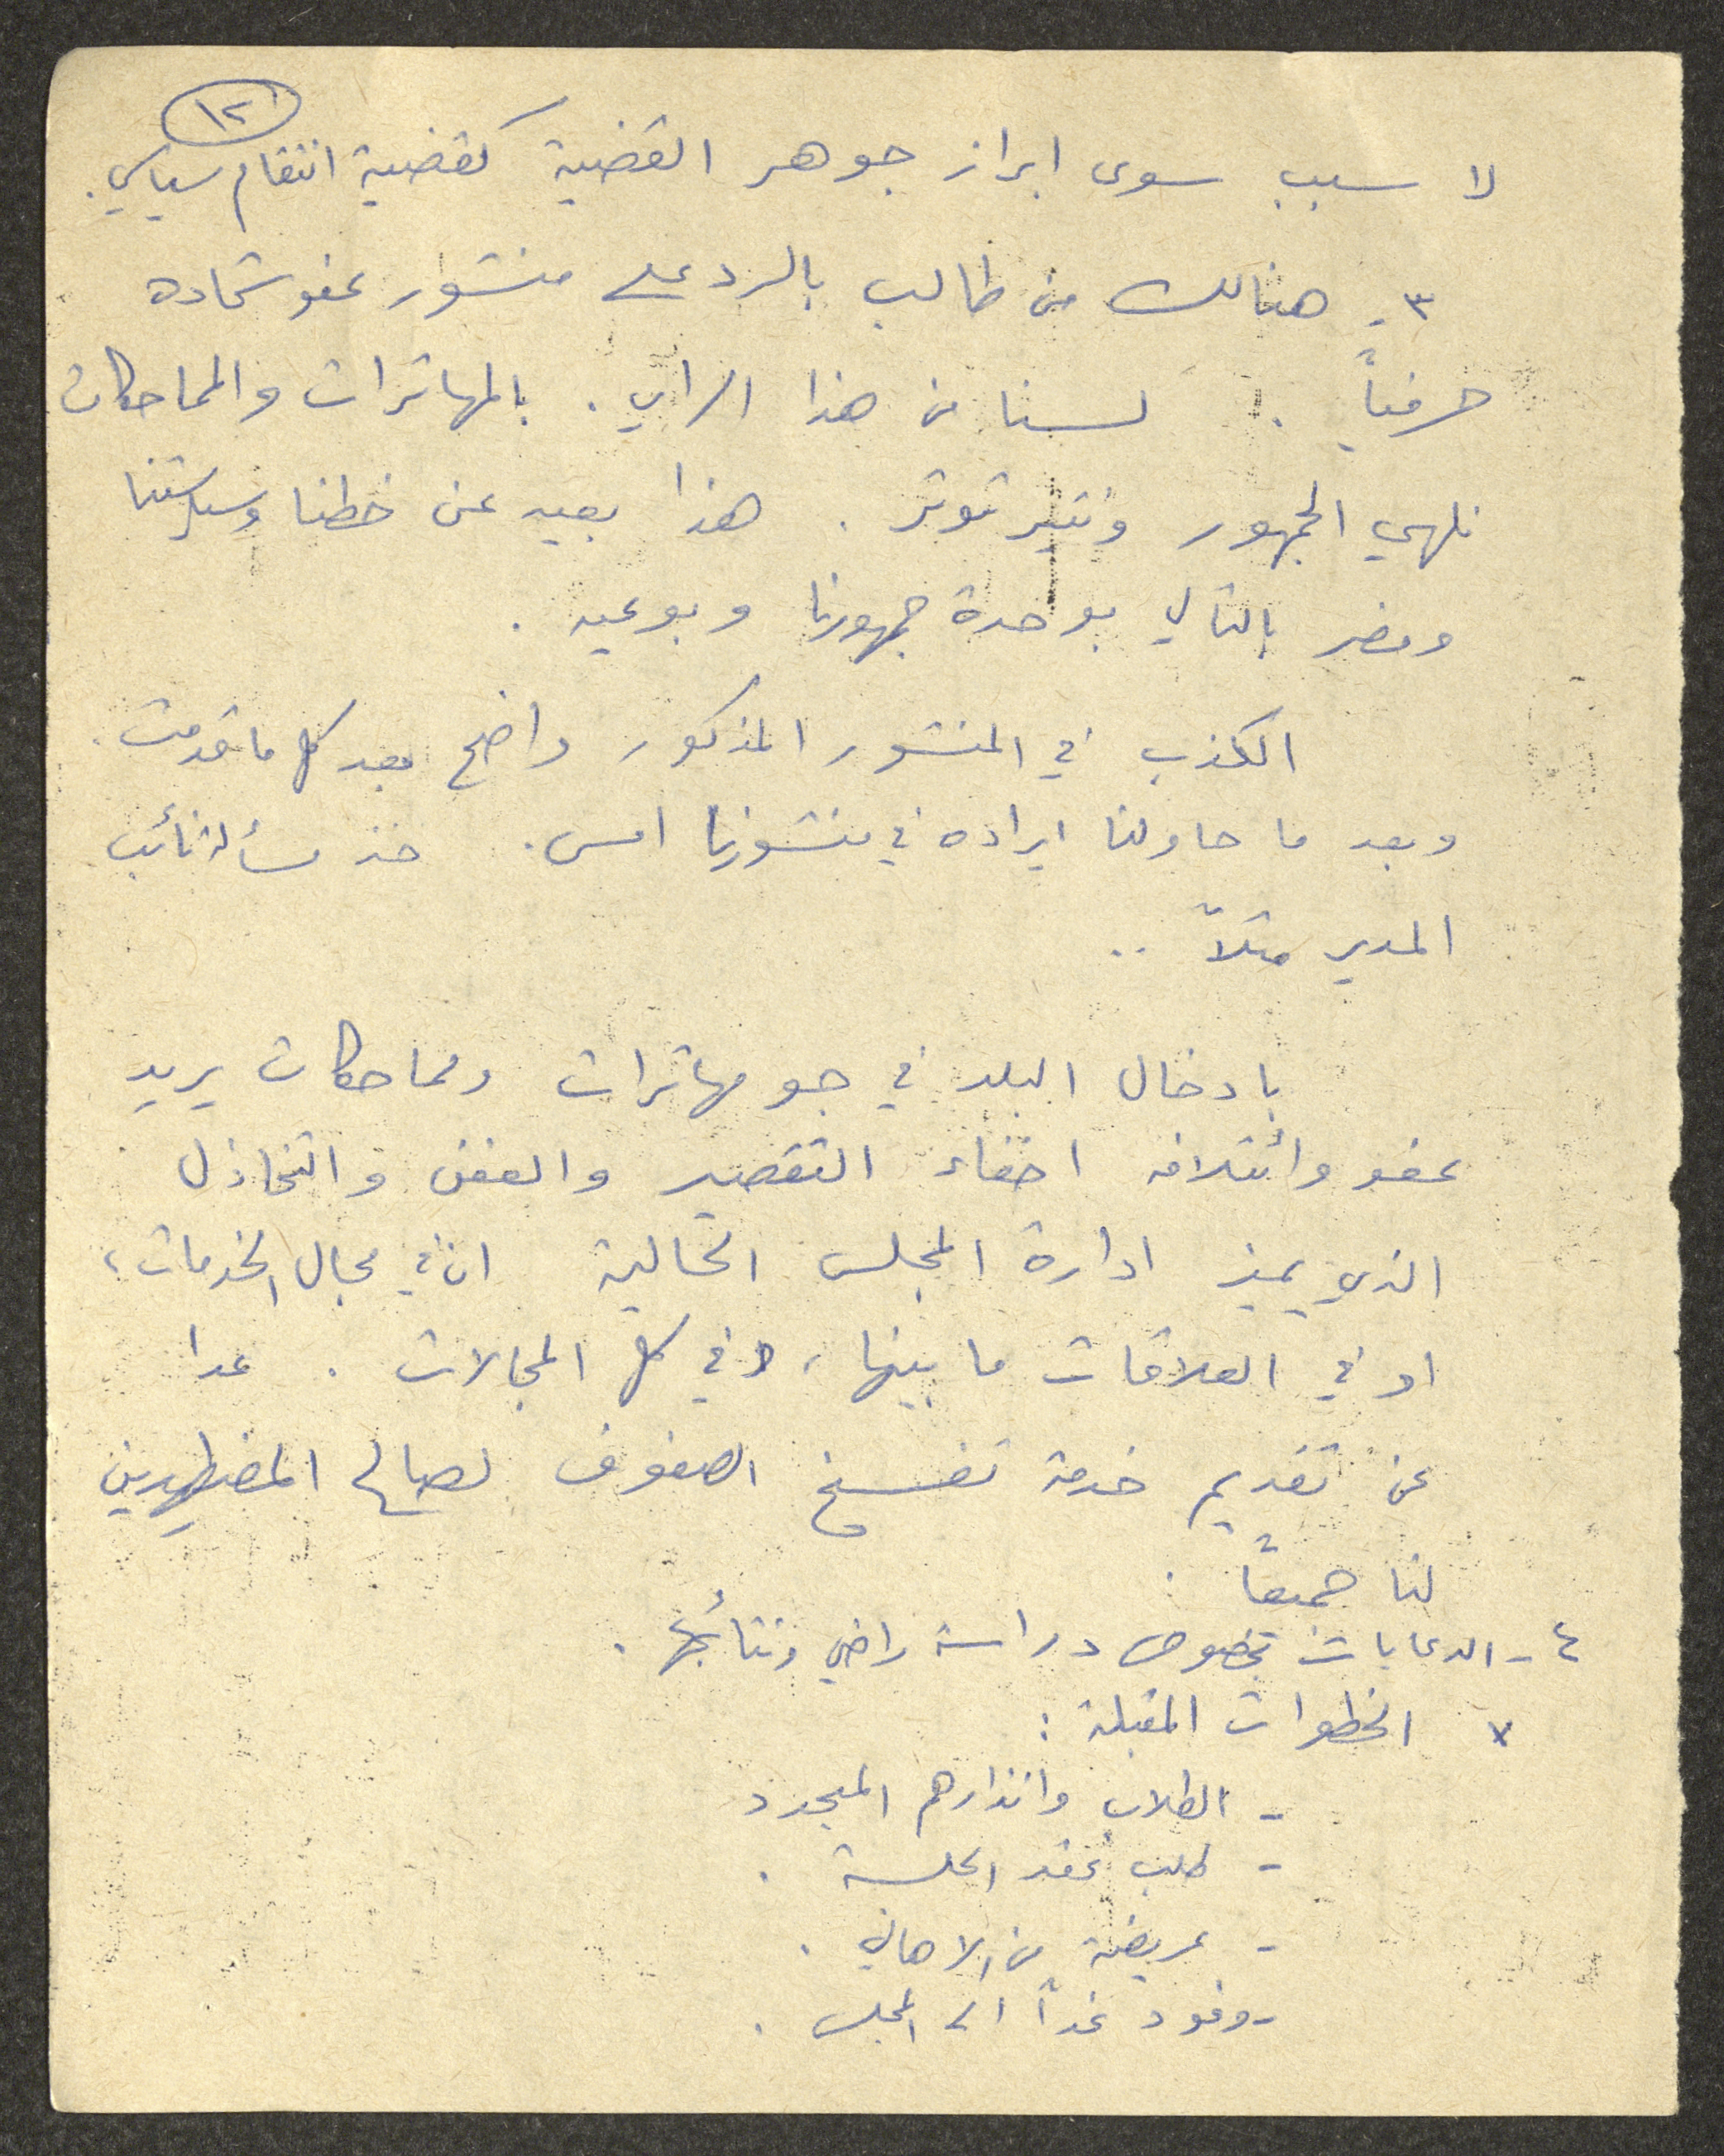 ١٢
لا سبب سوى ابراز جوهر القضية كقضية انتقام سياسي.
٣- هنالك من طالب بالرد على منشور عفو شحاده
حرفياً . لسنا من هذا الراي . بالمهاترات والمماحكات
نلهي الجمهور ونثير توتر . هذا بعيد عن خطنا وسياستنا
ومضر بالتالي بوحدة جمهورنا وبوعيه .
الكذب في المنشور المذكور واضح بعد كل ما قدمت .
وبعد ما حاولنا ايراده في منشورنا امس . خذ مسألة نائب
المدير مثلاً ..
بادخال البلد في جو مهاترات ومماحكات يريد
عفو وائتلافه اخفاء التقصير والعفن والتخاذل
الذي يميز ادارة المجلس الحالية ان في مجال الخدمات ،
او في العلاقات ما بينها ، وفي كل المجالات . عدا
عن تقديم خدمة تفسخ الصفوف لصالح المضطهدين
لنا جميعاً .
٤- الدعايات بخصوص دراسة راضي ونتائجها .
x الخطوات المقبلة :
- الطلاب وانذارهم المجدد
- طلب عقد الجلسة .
- عريضة من الاهالي .
- وفود غداً الى المجلس .